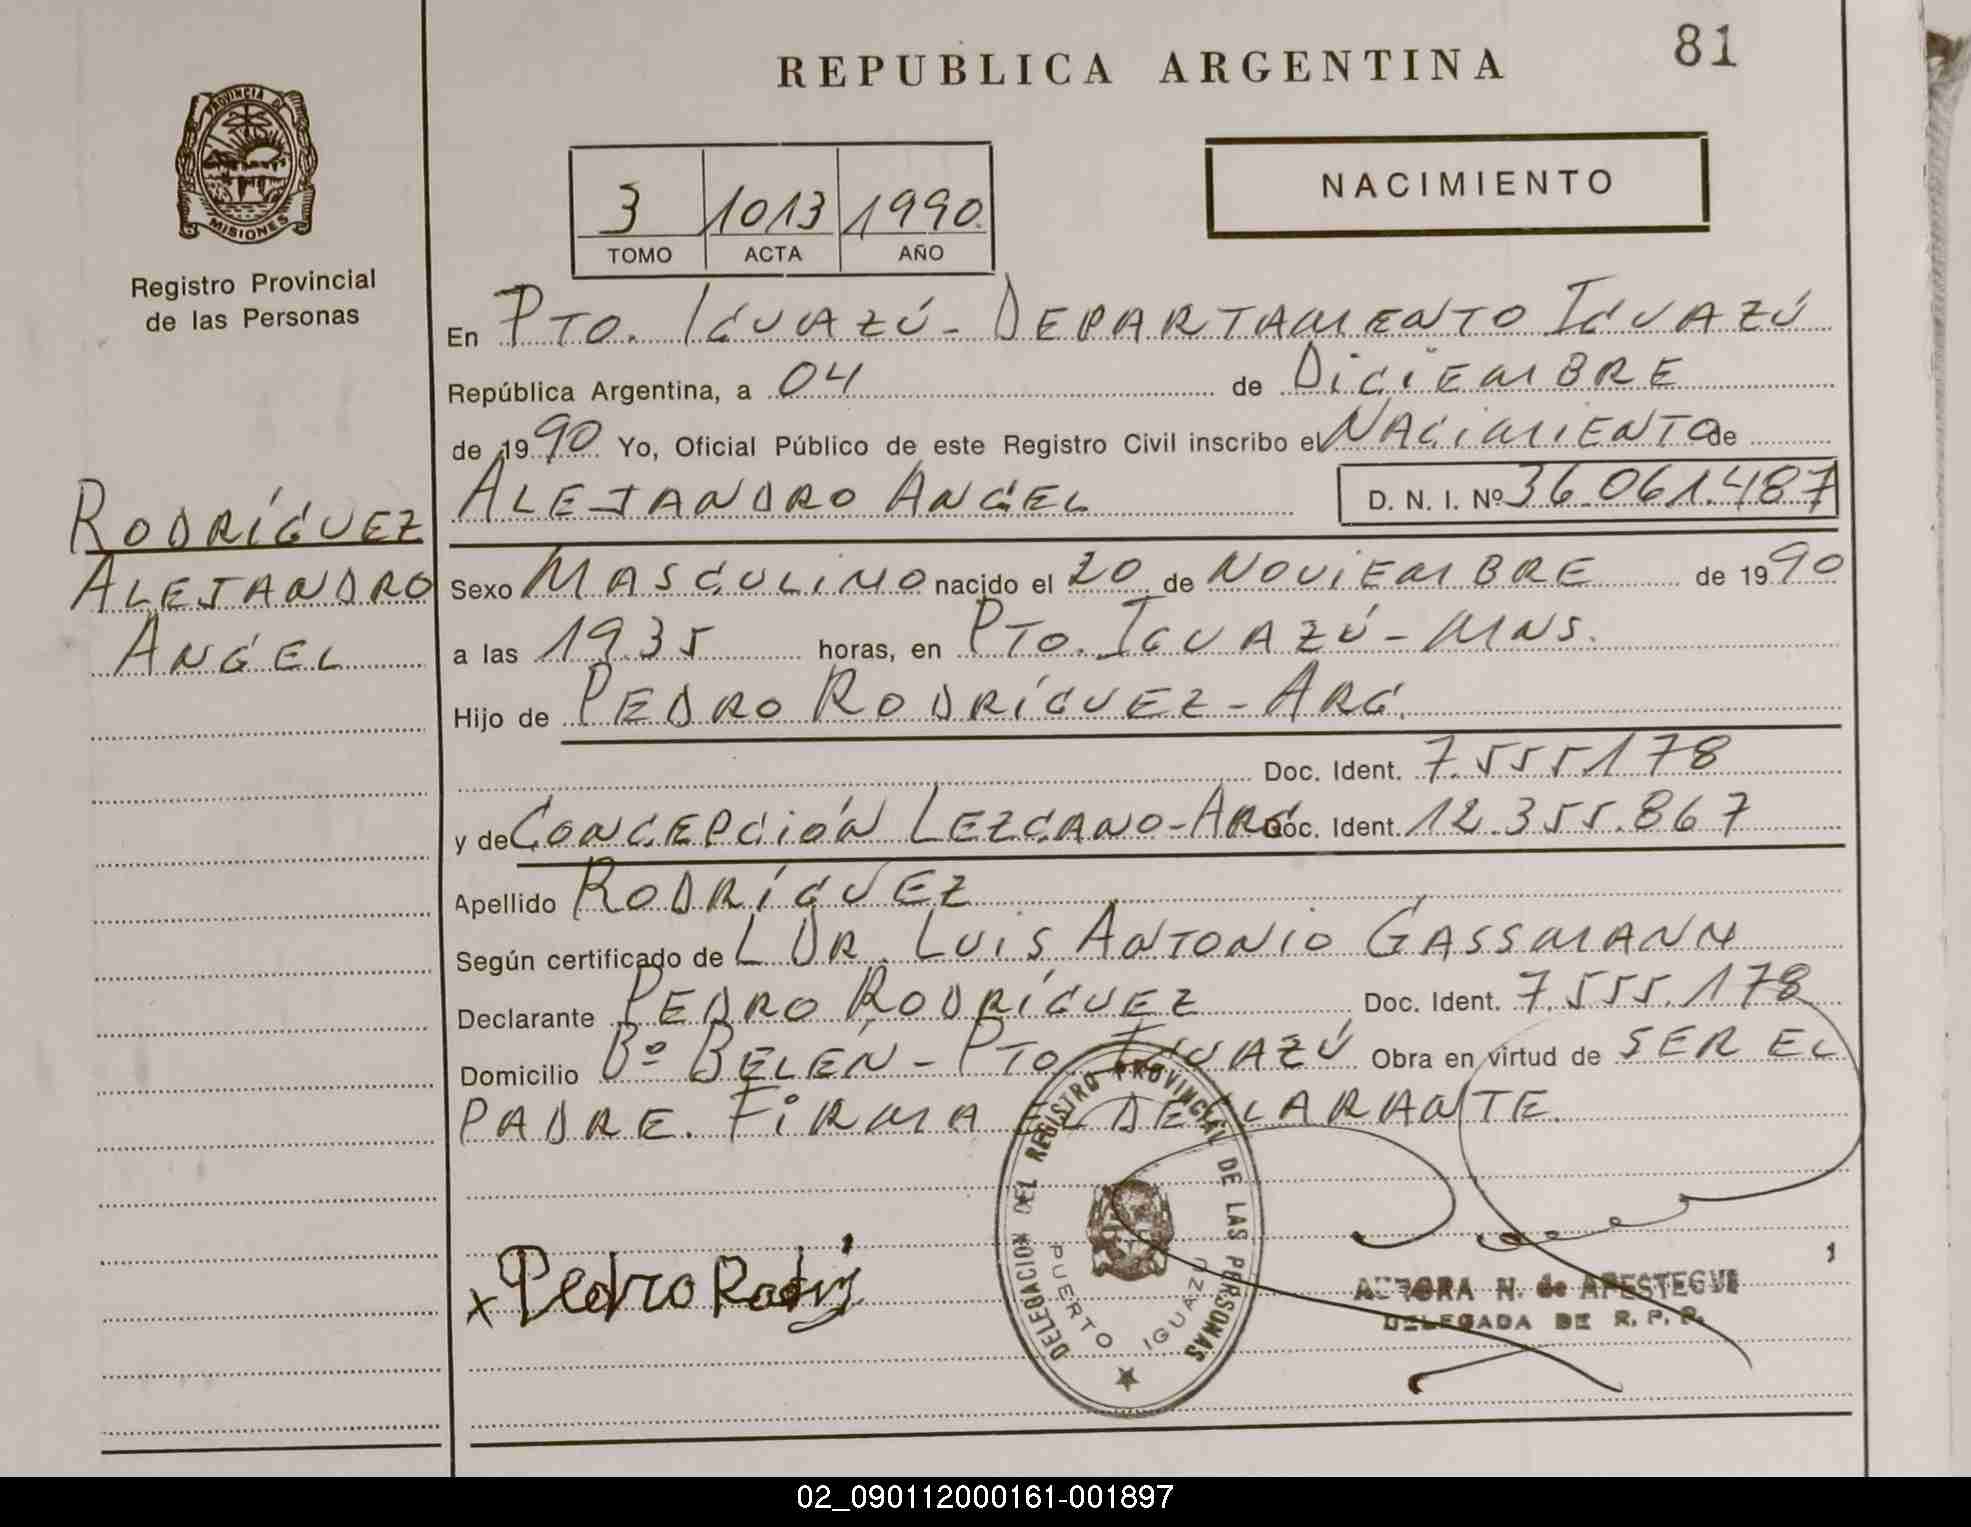 81
REPUBLICA ARGENTINA
PROVINCIA DE
MISIONES
Registro Provincial
de las Personas
3 1013 1990
TOMO ACTA AÑO
NACIMIENTO
En PTO. IGUAZÚ - DEPARTAMENTO IGUAZÚ
República Argentina, a 04 de DICIEMBRE
de 1990 Yo, Oficial Público de este Registro Civil inscribo el NACIMIENTO de
ALEJANDRO ANGEL D. N. I. Nº 36.061.487
RODRÍGUEZ
ALEJANDRO
ANGEL
Sexo MASCULINO nacido el 20 de NOVIEMBRE de 1990
a las 19.35 horas, en PTO. IGUAZÚ - MNS.
Hijo de PEDRO RODRÍGUEZ - ARG.
Doc. Ident. 7.555.178
y de CONCEPCIÓN LEZCANO - ARG Doc. Ident. 12.355.867
Apellido RODRÍGUEZ
Según certificado de L DR. LUIS ANTONIO GASSMANN
Declarante PEDRO RODRÍGUEZ Doc. Ident. 7.555.178
Domicilio Bº BELÉN - PTO. IGUAZÚ Obra en virtud de SER EL
PADRE. FIRMA EL DECLARANTE.
DELEGACION DEL REGISTRO PROVINCIAL DE LAS PERSONAS
PUERTO IGUAZU
x Pedro Rodrig
AURORA N. de APESTEGUI
DELEGADA DE R. P. P.
02_090112000161-001897